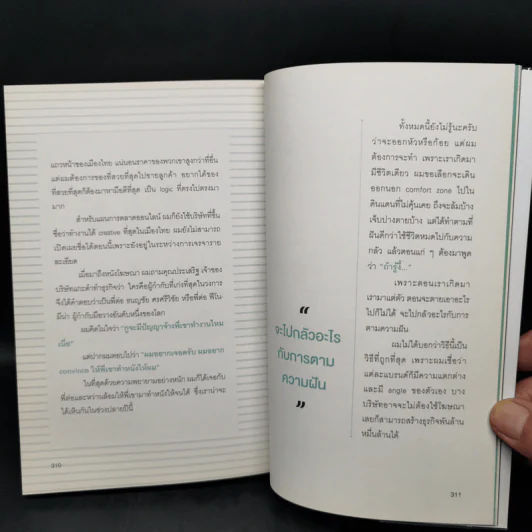 แถวหน้าของเมืองไทย แน่นอนราคาของพวกเขาสูงกว่าที่อื่น
แต่ผมต้องการของที่สวยที่สุดไปขายลูกค้า อยากได้ของ
ที่สวยที่สุดก็ต้องหามือดีที่สุด เป็น logic ที่ตรงไปตรงมา
มาก
สำหรับแผนการตลาดออนไลน์ ผมก็ยังใช้บริษัทที่ขึ้น
ชื่อว่าทำงานได้ creative ที่สุดในเมืองไทย ผมยังไม่สามารถ
เปิดเผยชื่อได้ตอนนี้เพราะยังอยู่ในระหว่างการเจรจาราย
ละเอียด
เมื่อมาถึงหนังโฆษณา ผมถามคุณประเสริฐ เจ้าของ
บริษัทแกะดำทำธุรกิจว่า ใครคือผู้กำกับที่เก่งที่สุดในวงการ
จึงได้คำตอบว่าเป็นพี่ต่อ ธนญชัย ศรศรีวิชัย หรือพี่ต่อ ฟีโน
มีน่า ผู้กำกับมือวางอันดับหนึ่งของโลก
ผมคิดในใจว่า “กูจะมีปัญญาจ้างพี่เขาทำงานไหม
เนี่ย”
แต่ปากผมตอบไปว่า “ผมอยากเจอครับ ผมอยาก
convince ให้พี่เขาทำหนังให้ผม”
ในที่สุดด้วยความพยายามอย่างหนัก ผมก็ได้เจอกับ
พี่ต่อและหว่านล้อมให้พี่เขามาทำหนังให้จนได้ ซึ่งเราน่าจะ
ได้เห็นกันในช่วงปลายปีนี้
310
“
จะไปกลัวอะไร
กับการตาม
ความฝัน
”
ทั้งหมดนี้ยังไม่รู้นะครับ
ว่าจะออกหัวหรือก้อย แต่ผม
ต้องการจะทำ เพราะเราเกิดมา
มีชีวิตเดียว ผมขอเลือกจะเดิน
ออกนอก comfort zone ไปใน
ดินแดนที่ไม่คุ้นเคย ถึงจะล้มบ้าง
เจ็บปางตายบ้าง แต่ได้ทำตามที่
ฝันดีกว่าใช้ชีวิตหมดไปกับความ
กลัว แล้วตอนแก่ ๆ ต้องมาพูด
ว่า “ถ้ารู้งี้...”
เพราะตอนเราเกิดมา
เรามาแค่ตัว ตอนจะตายเอาอะไร
ไปก็ไม่ได้ จะไปกลัวอะไรกับการ
ตามความฝัน
ผมไม่ได้บอกว่าวิธีนี้เป็น
วิธีที่ถูกที่สุด เพราะผมเชื่อว่า
แต่ละแบรนด์ก็มีความแตกต่าง
และมี angle ของตัวเอง บาง
บริษัทอาจจะไม่ต้องใช้โฆษณา
เลยก็สามารถสร้างธุรกิจพันล้าน
หมื่นล้านได้
311